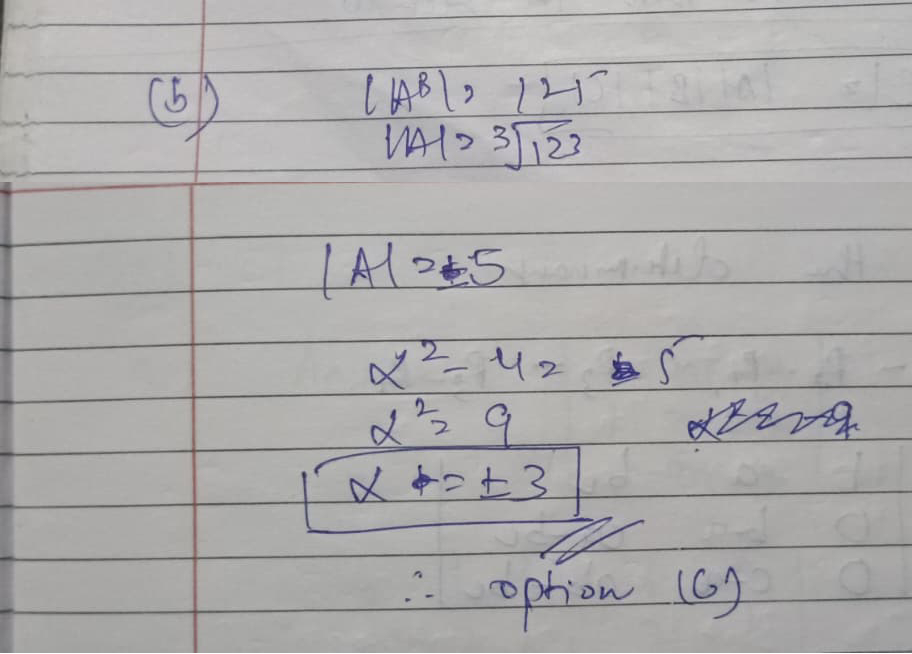 (5) |A³| = 125
|A| = ∛123
|A| = ±5
α² - 4 = 5
α² = 9
α = ±3
∴ option (C)